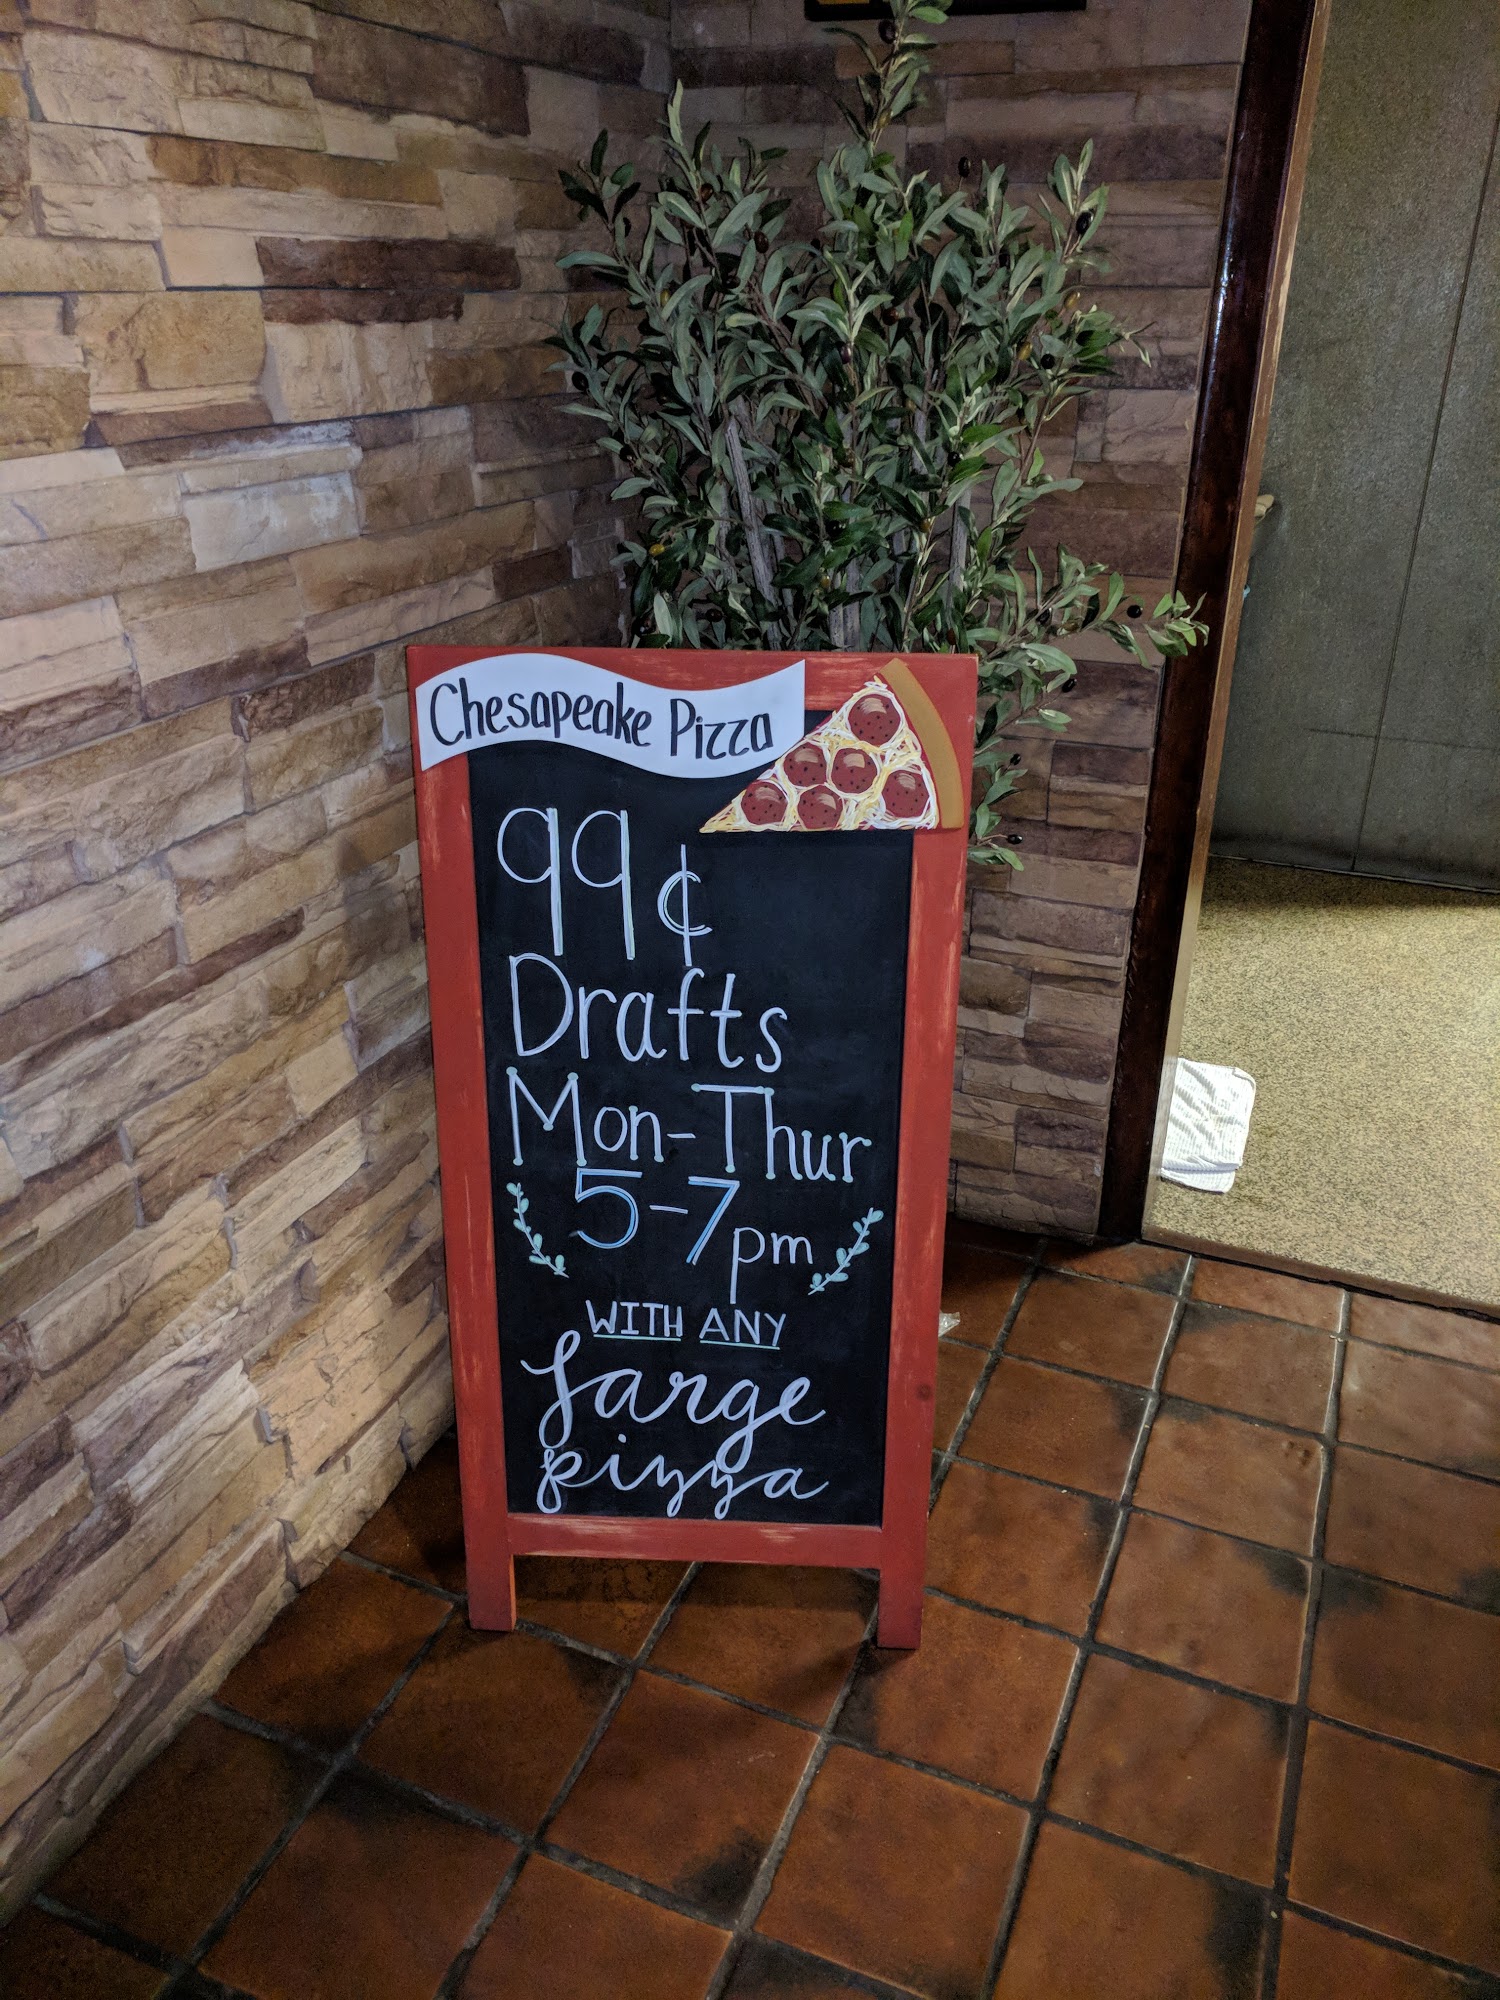 Chesapeake Pizza
99¢
Drafts
Mon-Thur
5-7pm
WITH ANY
Large
pizza